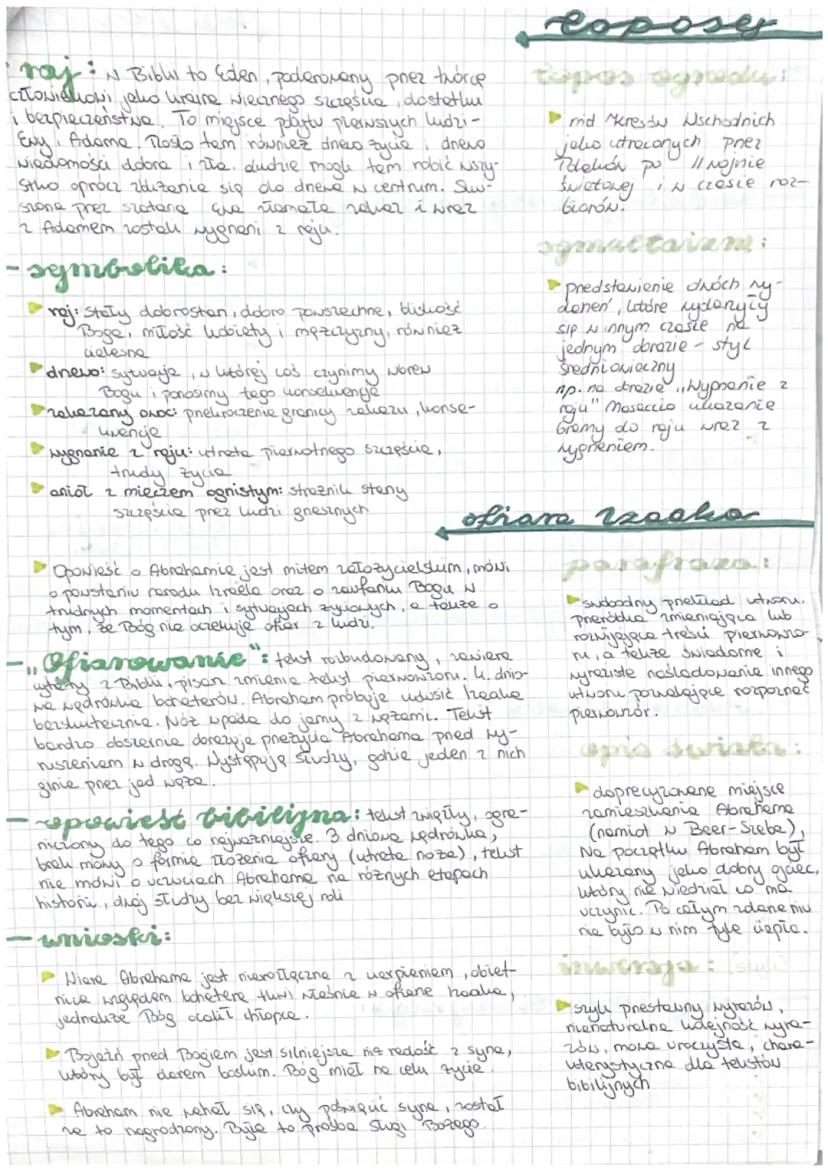 toposy
raj: w Biblii to Eden, podarowany przez twórcę
człowiekowi jako kraina wiecznego szczęścia, dostatku
i bezpieczeństwa. To miejsce pobytu pierwszych ludzi-
Ewy i Adama. Rosło tam również drzewo życia i drzewo
wiadomości dobra i zła. Ludzie mogli tam robić wszy-
stko oprócz zbliżania się do drzewa w centrum. Sku-
szona przez szatana Ewa złamała zakaz i wraz
z Adamem zostali wygnani z raju.
- symbolika:
raj: stały dobrostan, dobro powszechne, bliskość
Boga, miłość kobiety i mężczyzny, również
cielesna
drzewo: sytuacja, w której coś czynimy wbrew
Bogu i ponosimy tego konsekwencje
zakazany owoc: przekroczenie granicy zakazu, konse-
kwencje
wygnanie z raju: utrata pierwotnego szczęścia,
trudy życia
anioł z mieczem ognistym: strażnik
szczęścia przez ludzi grzesznych
topos ogrodu:
mit Kresów Wschodnich
jako utraconych przez
Polaków po II wojnie
światowej i w czasie roz-
biorów.
przedstawienie dwóch wy-
darzeń, które wydarzyły
się w innym czasie na
jednym obrazie - styl
średniowieczny
np. na obrazie "Wygnanie z
raju" Masaccio ukazanie
bramy do raju wraz z
wygnaniem.
ofiara Izaaka
Opowieść o Abrahamie jest mitem założycielskim, mówi
o powstaniu narodu Izraela oraz o zaufaniu Bogu w
trudnych momentach i sytuacjach życiowych, a także o
tym, że Bóg nie oczekuje ofiar z ludzi.
- "Ofiarowanie": tekst rozbudowany, zawiera
cytaty z Biblii, pisarz zmienia tekst pierwowzoru. 4. dnio-
wa wędrówka bohaterów. Abraham próbuje udusić Izaaka
bezskutecznie. Nóż wpada do jamy z wężami. Tekst
bardzo obszernie przeżycia Abrahama przed wy-
ruszeniem w drogę. Występują słudzy, gdzie jeden z nich
ginie przez jad węża.
- opowieść biblijna: tekst zwięzły, ogra-
niczony do tego co najważniejsze. 3 dniowa wędrówka,
brak mowy o formie złożenia ofiary (utrata noża), tekst
nie mówi o uczuciach Abrahama na różnych etapach
historii, dwaj słudzy bez większej roli
- wnioski:
Wiara Abrahama jest nierozłączna z cierpieniem, obiet-
nica względem bohatera tkwi właśnie w ofierze Izaaka,
jednakże Bóg ocalił chłopca.
Bojaźń przed Bogiem jest silniejsza niż radość z syna,
który był darem boskim. Bóg miał na celu życie.
Abraham nie wahał się, czy poświęcić syna, został
za to nagrodzony. Była to prośba sługi Bożego.
parafraza:
swobodny przekład utworu.
przeróbka zmieniająca lub
rozwijająca treści pierwowzo-
ru, a także świadome i
wyraziste naśladowanie innego
utworu pozwalające rozpoznać
pierwowzór.
opis świata:
doprecyzowane miejsce
zamieszkania Abrahama
(namiot w Beer-Szeba),
Na początku Abraham był
ukazany jako dobry ojciec,
który nie wiedział co ma
uczynić. Po całym zdarzeniu
nie było w nim tyle ciepła.
inwersja:
szyk przestawny wyrazów,
nienaturalna kolejność wyra-
zów, mowa uroczysta, chara-
kterystyczna dla tekstów
biblijnych